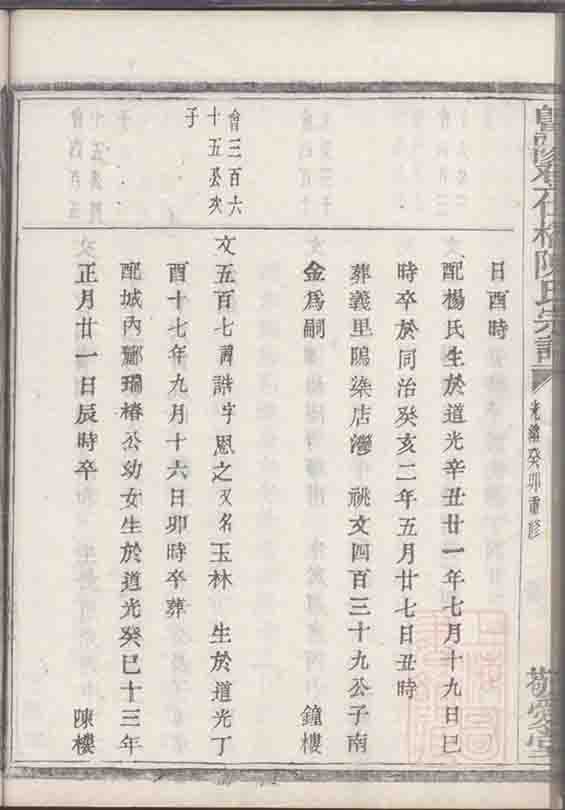 橋陳氏宗譜
光緒癸卯重修
敬愛堂
日酉時
配楊氏生於道光辛丑廿一年七月十九日巳
時卒於同治癸亥二年五月廿七日丑時
葬義里塢柒店灣 祧文四百三十九公子南
金爲嗣 鐘樓
會三百六
十五公次
子
文五百七 諱誥字思之又名玉林 生於道光丁
酉十七年九月十六日卯時卒葬
配城內酈瑞椿公幼女生於道光癸巳十三年
正月廿一日辰時卒 陳樓